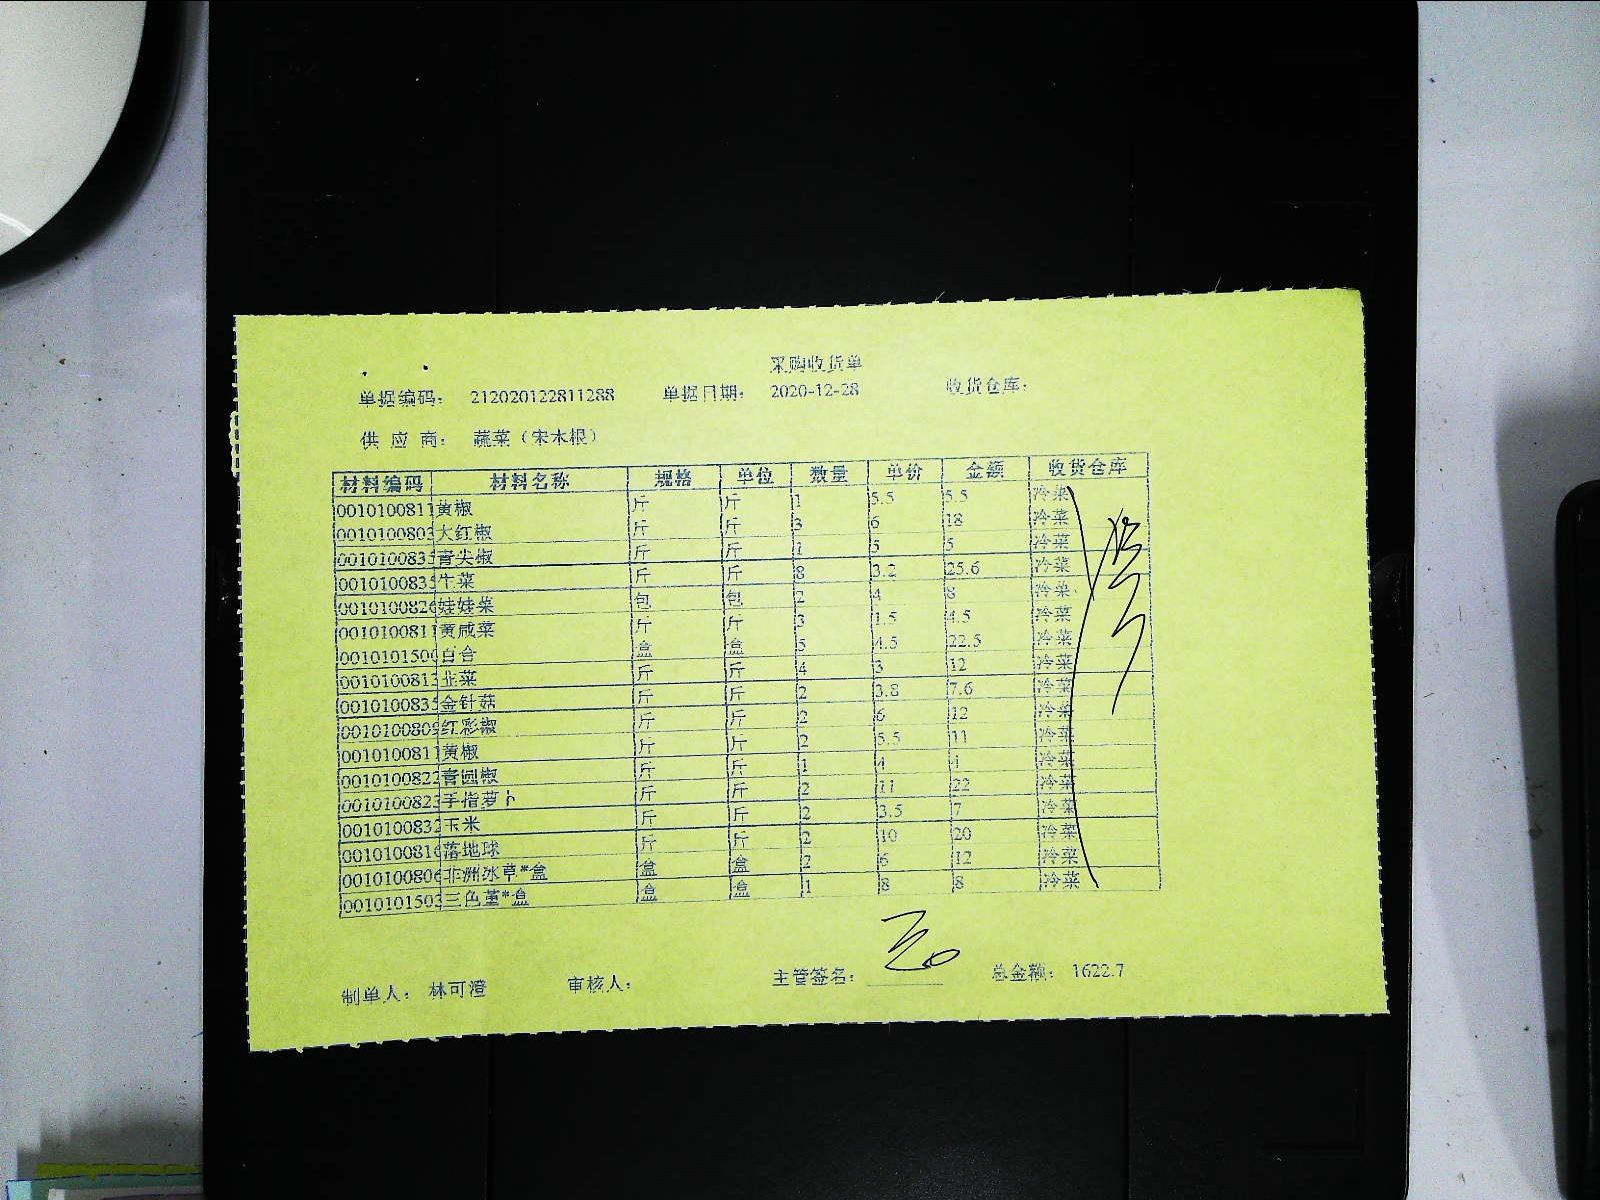 采购收货单
单据编码： 212020122811288 单据日期： 2020-12-28 收货仓库：
供 应 商： 蔬菜（宋木根）
材料编码 材料名称 规格 单位 数量 单价 金额 收货仓库
0010100811 黄椒 斤 斤 1 5.5 5.5 冷菜
0010100803 大红椒 斤 斤 3 6 18 冷菜
001010083 青尖椒 斤 斤 1 5 5 冷菜
001010083 生菜 斤 斤 8 3.2 25.6 冷菜
001010082 娃娃菜 包 包 2 4 8 冷菜
0010100811 黄咸菜 斤 斤 3 1.5 4.5 冷菜
001010150 百合 盒 盒 5 4.5 22.5 冷菜
001010081 韭菜 斤 斤 4 3 12 冷菜
001010083 金针菇 斤 斤 2 3.8 7.6 冷菜
001010080 红彩椒 斤 斤 2 6 12 冷菜
0010100811 黄椒 斤 斤 2 5.5 11 冷菜
001010082 青圆椒 斤 斤 1 4 4 冷菜
001010082 手指萝卜 斤 斤 2 11 22 冷菜
0010100832 玉米 斤 斤 2 3.5 7 冷菜
001010081 落地球 斤 斤 2 10 20 冷菜
001010080 非洲冰草*盒 盒 盒 2 6 12 冷菜
0010101503 三色堇*盒 盒 盒 1 8 8 冷菜
制单人： 林可澄 审核人： 主管签名： 总金额： 1622.7